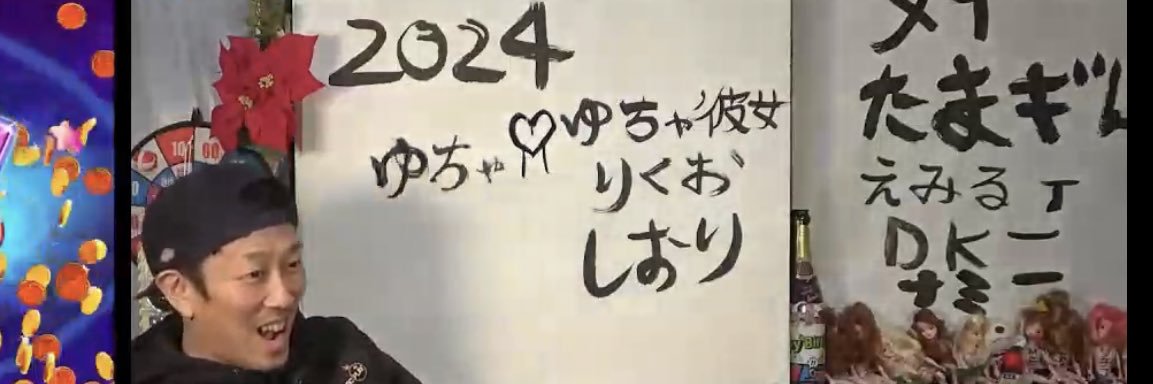 2024
ゆちゃ♡ゆちゃ彼女
りくお
しおり
メイ
たまぎん
えみる
DK
ナミ